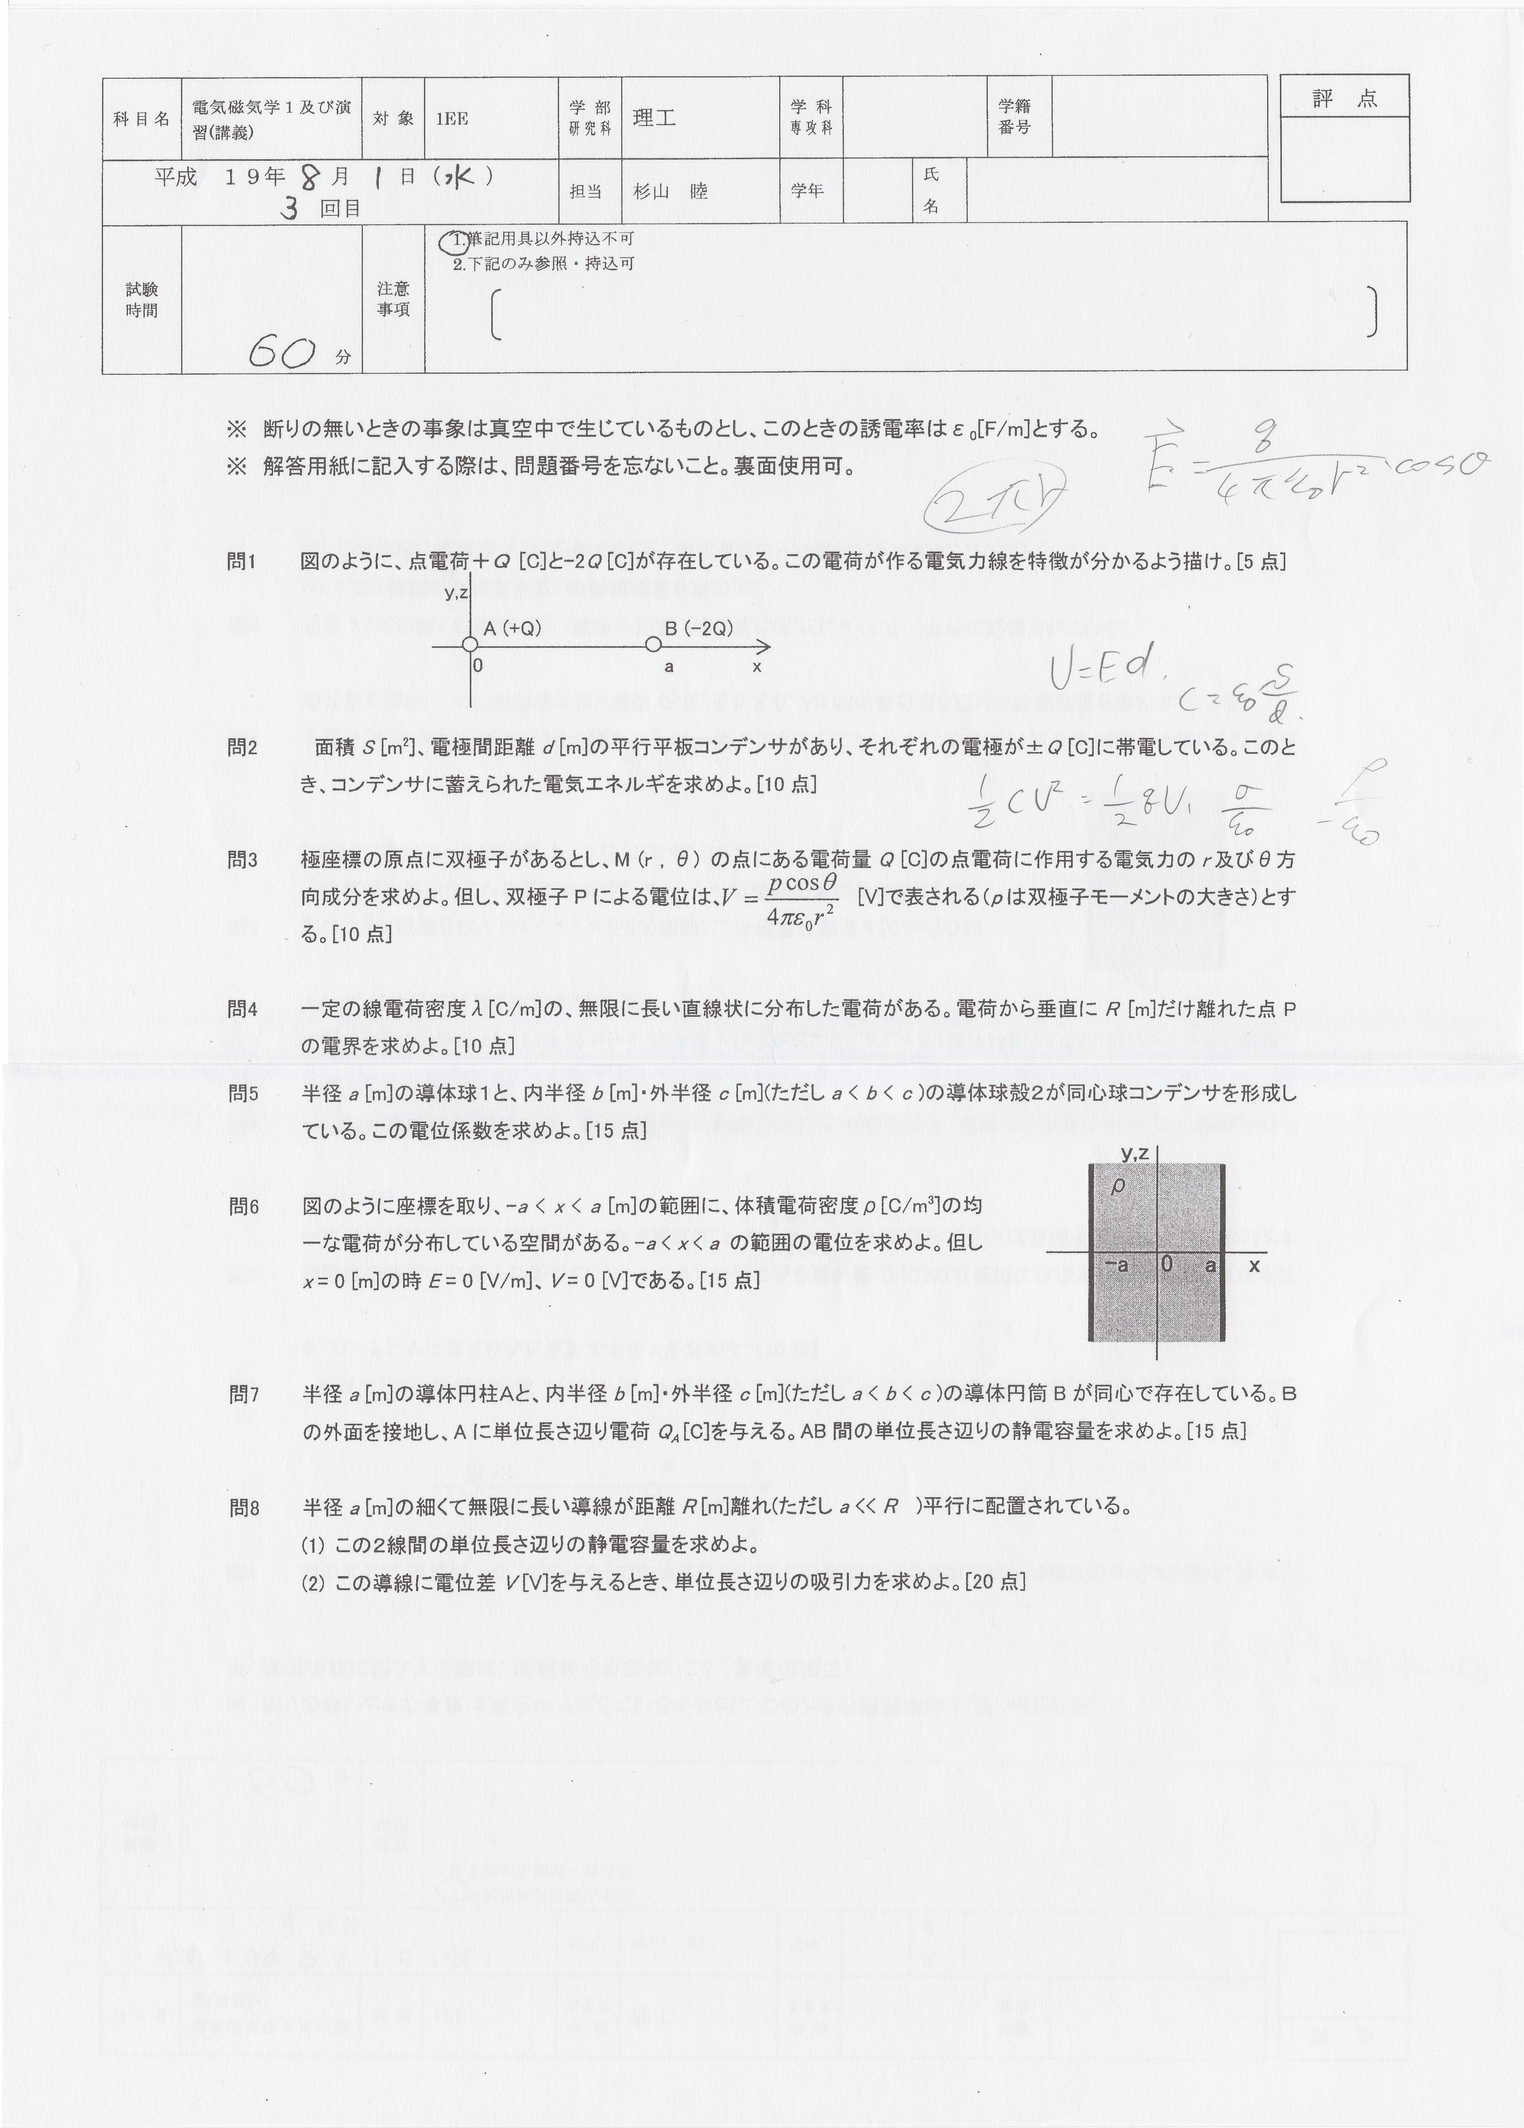 科目名 電気磁気学1及び演習(講義) 対象 1EE 学部研究科 理工 学科専攻科 学籍番号 評点
平成 19年 8月 1日 (水)
3 回目
担当 杉山 睦 学年 氏名
試験時間 60 分 注意事項
1.筆記用具以外持込不可
2.下記のみ参照・持込可
※ 断りの無いときの事象は真空中で生じているものとし、このときの誘電率はε0[F/m]とする。
※ 解答用紙に記入する際は、問題番号を忘ないこと。裏面使用可。
2πr
E = q/4πε0r² cosθ
問1 図のように、点電荷+Q [C]と-2Q [C]が存在している。この電荷が作る電気力線を特徴が分かるよう描け。[5 点]
y,z
A (+Q) B (-2Q)
0 a x
V=Ed.
C=ε0 S/d.
問2 面積 S [m²]、電極間距離 d [m]の平行平板コンデンサがあり、それぞれの電極が±Q [C]に帯電している。このと
き、コンデンサに蓄えられた電気エネルギを求めよ。[10 点]
1/2 CV² = 1/2 qV, σ/ε0 -ρ/ε0
問3 極座標の原点に双極子があるとし、M (r , θ) の点にある電荷量 Q [C]の点電荷に作用する電気力の r 及びθ方
向成分を求めよ。但し、双極子 P による電位は、V = p cosθ/4πε0r² [V]で表される(p は双極子モーメントの大きさ)とす
る。[10 点]
問4 一定の線電荷密度λ[C/m]の、無限に長い直線状に分布した電荷がある。電荷から垂直に R [m]だけ離れた点 P
の電界を求めよ。[10 点]
問5 半径 a [m]の導体球1と、内半径 b [m]・外半径 c [m](ただし a < b < c )の導体球殻2が同心球コンデンサを形成し
ている。この電位係数を求めよ。[15 点]
問6 図のように座標を取り、-a < x < a [m]の範囲に、体積電荷密度ρ[C/m³]の均
一な電荷が分布している空間がある。-a < x < a の範囲の電位を求めよ。但し
x = 0 [m]の時 E = 0 [V/m]、V = 0 [V]である。[15 点]
y,z
ρ
-a 0 a x
問7 半径 a [m]の導体円柱Aと、内半径 b [m]・外半径 c [m](ただし a < b < c )の導体円筒 B が同心で存在している。B
の外面を接地し、A に単位長さ辺り電荷 QA [C]を与える。AB 間の単位長さ辺りの静電容量を求めよ。[15 点]
問8 半径 a [m]の細くて無限に長い導線が距離 R [m]離れ(ただし a << R )平行に配置されている。
(1) この2線間の単位長さ辺りの静電容量を求めよ。
(2) この導線に電位差 V [V]を与えるとき、単位長さ辺りの吸引力を求めよ。[20 点]